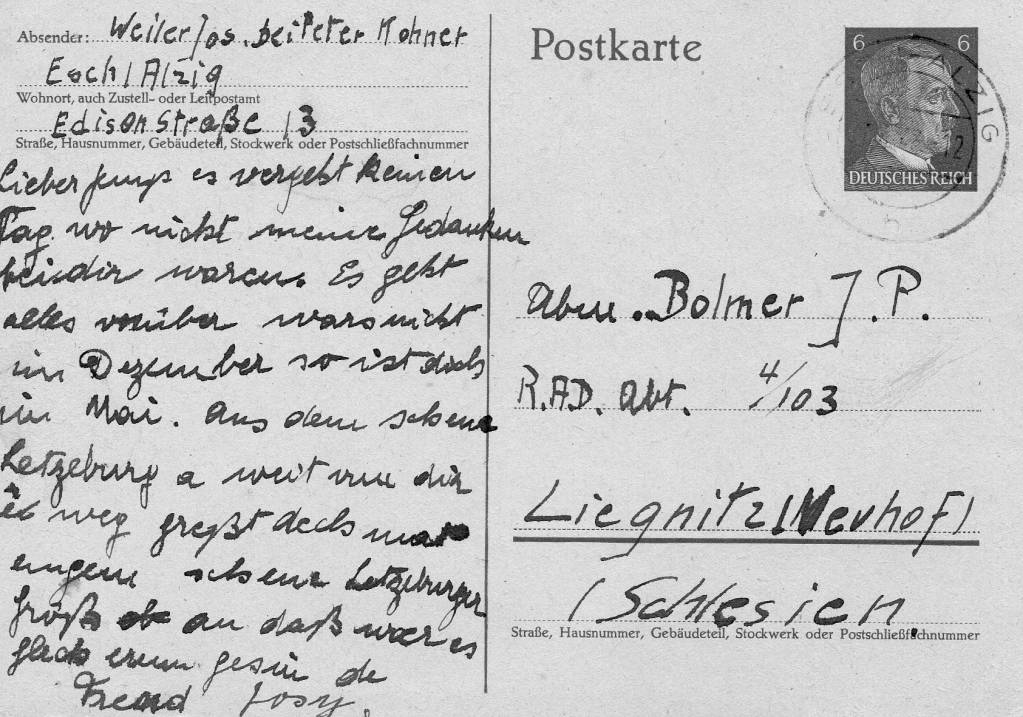 Absender: Weiler Jos. bei Peter Kohner
Esch / Alzig
Wohnort, auch Zustell- oder Leitpostamt
Edisonstraße 13
Straße, Hausnummer, Gebäudeteil, Stockwerk oder Postschließfachnummer
Lieber Jemp es vergeht keinen
Tag wo nicht meine Gedanken
bei dir waren. Es geht
alles vorüber wars nicht
im Dezember so ist doch
im Mai. Aus dem schene
Letzeburg a weit vun dir
weg greßt dech mat
engem schene Letzeburger
Größ an daß mer es
glech erem gesin de
Frend Josy.
Postkarte
6 6
DEUTSCHES REICH
ALZIG
12
b
Bolmer J.P.
R.A.D. Abt. 4/103
Liegnitz (Neuhof)
(Schlesien
Straße, Hausnummer, Gebäudeteil, Stockwerk oder Postschließfachnummer